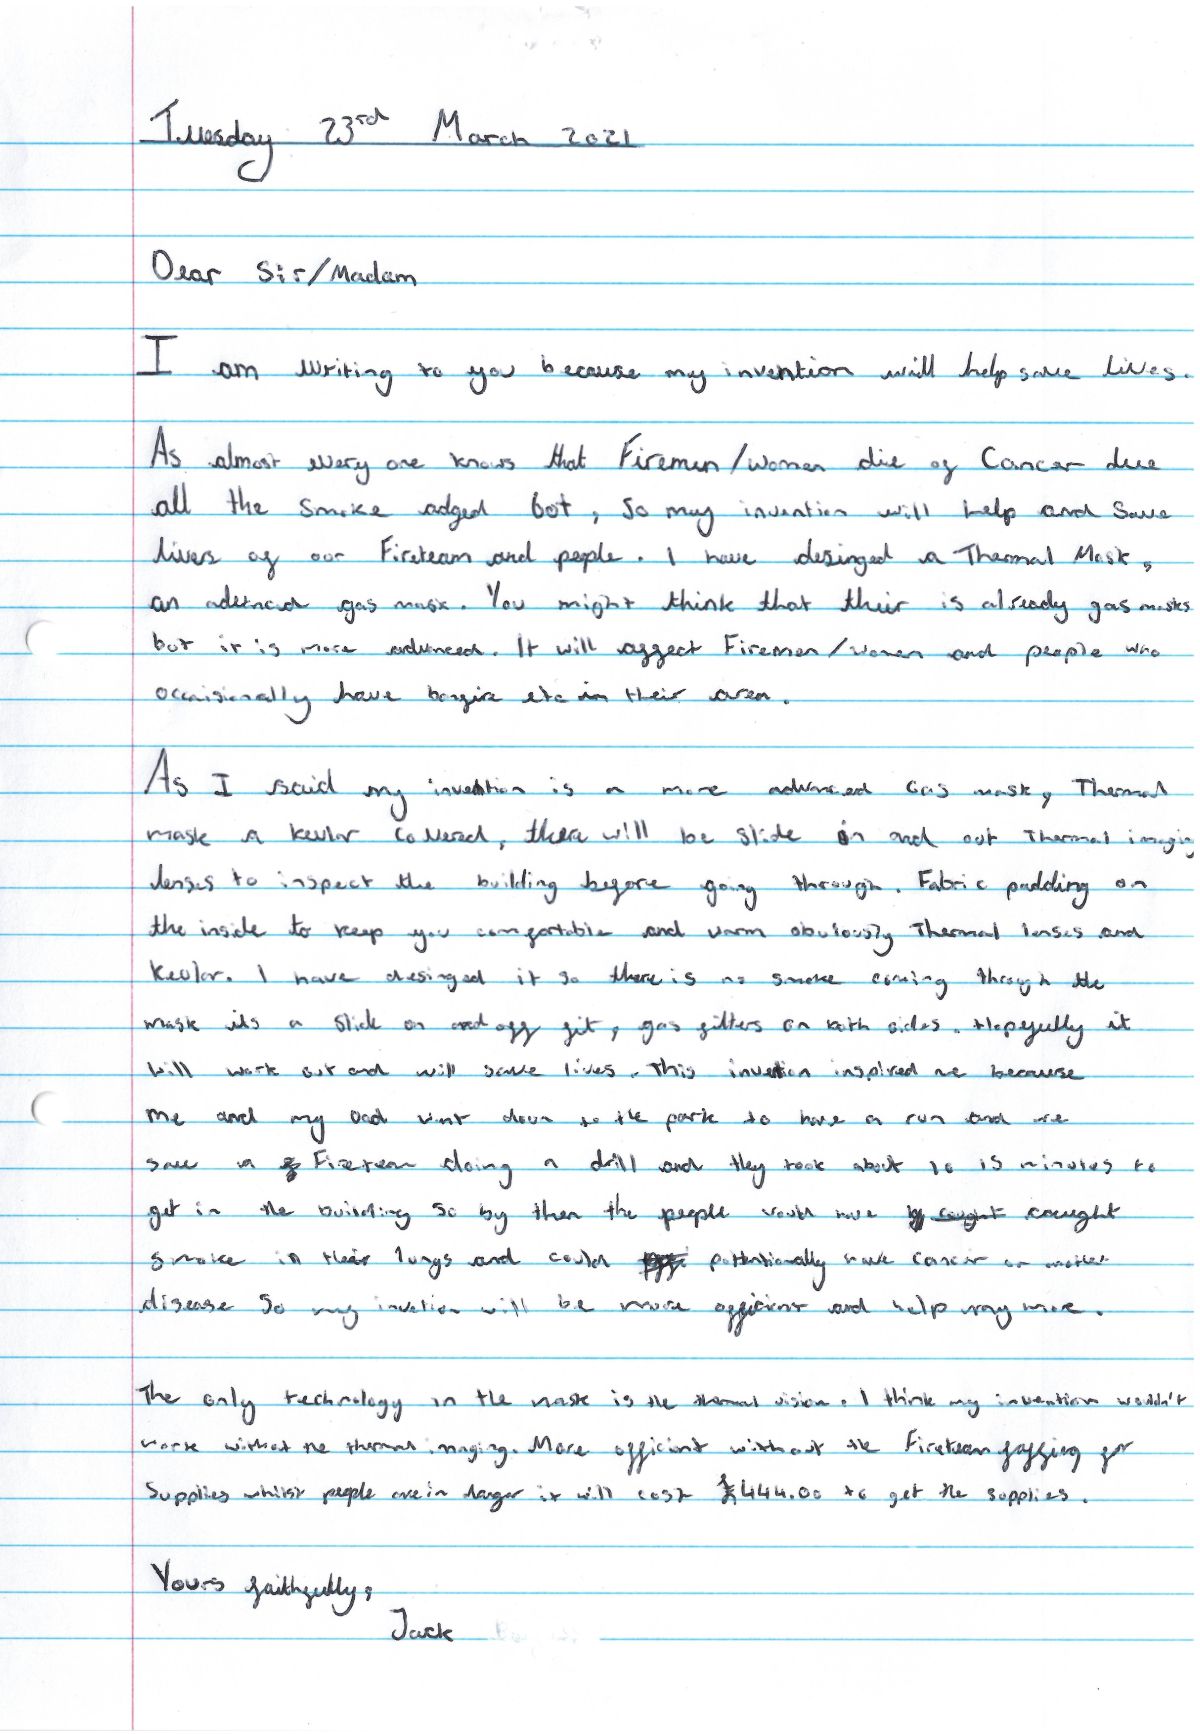 Tuesday 23rd March 2021
Dear Sir/Madam
I am writing to you because my invention will help save lives.
As almost every one knows that Firemen/women die of Cancer due
all the smoke adged bot, so may invention will help and save
livers of our Fireteam and people. I have desinged a Thermal Mask,
an advenced gas mask. You might think that their is already gas masks
but it is more advanced. It will affect Firemen/women and people who
occaisionally have bonfire etc in their area.
As I said my invention is a more advanced Gas mask, Thermal
mask a kevlar covered, there will be slide in and out Thermal imaging
lenses to inspect the building before going through. Fabric padding on
the inside to keep you comfortable and warm obviously Thermal lenses and
Kevlar. I have desinged it so there is no smoke coming through the
mask its a slick on and off fit, gas filters on both sides. Hopefully it
will work out and will save lives. This invention inspired me because
me and my Dad went down to the park to have a run and we
saw a Fireteam doing a drill and they took about 10 15 minutes to
get in the building so by then the people would have caught
smoke in their lungs and could pottentionally have cancer or another
disease so my invetion will be more efficient and help many more.
The only technology in the mask is the thermal vision. I think my invention wouldn't
work without the thermal imaging. More efficient without the Fireteam faffing for
Supplies whilst people are in danger it will cost £444.00 to get the supplies.
Yours faithfully,
Jack